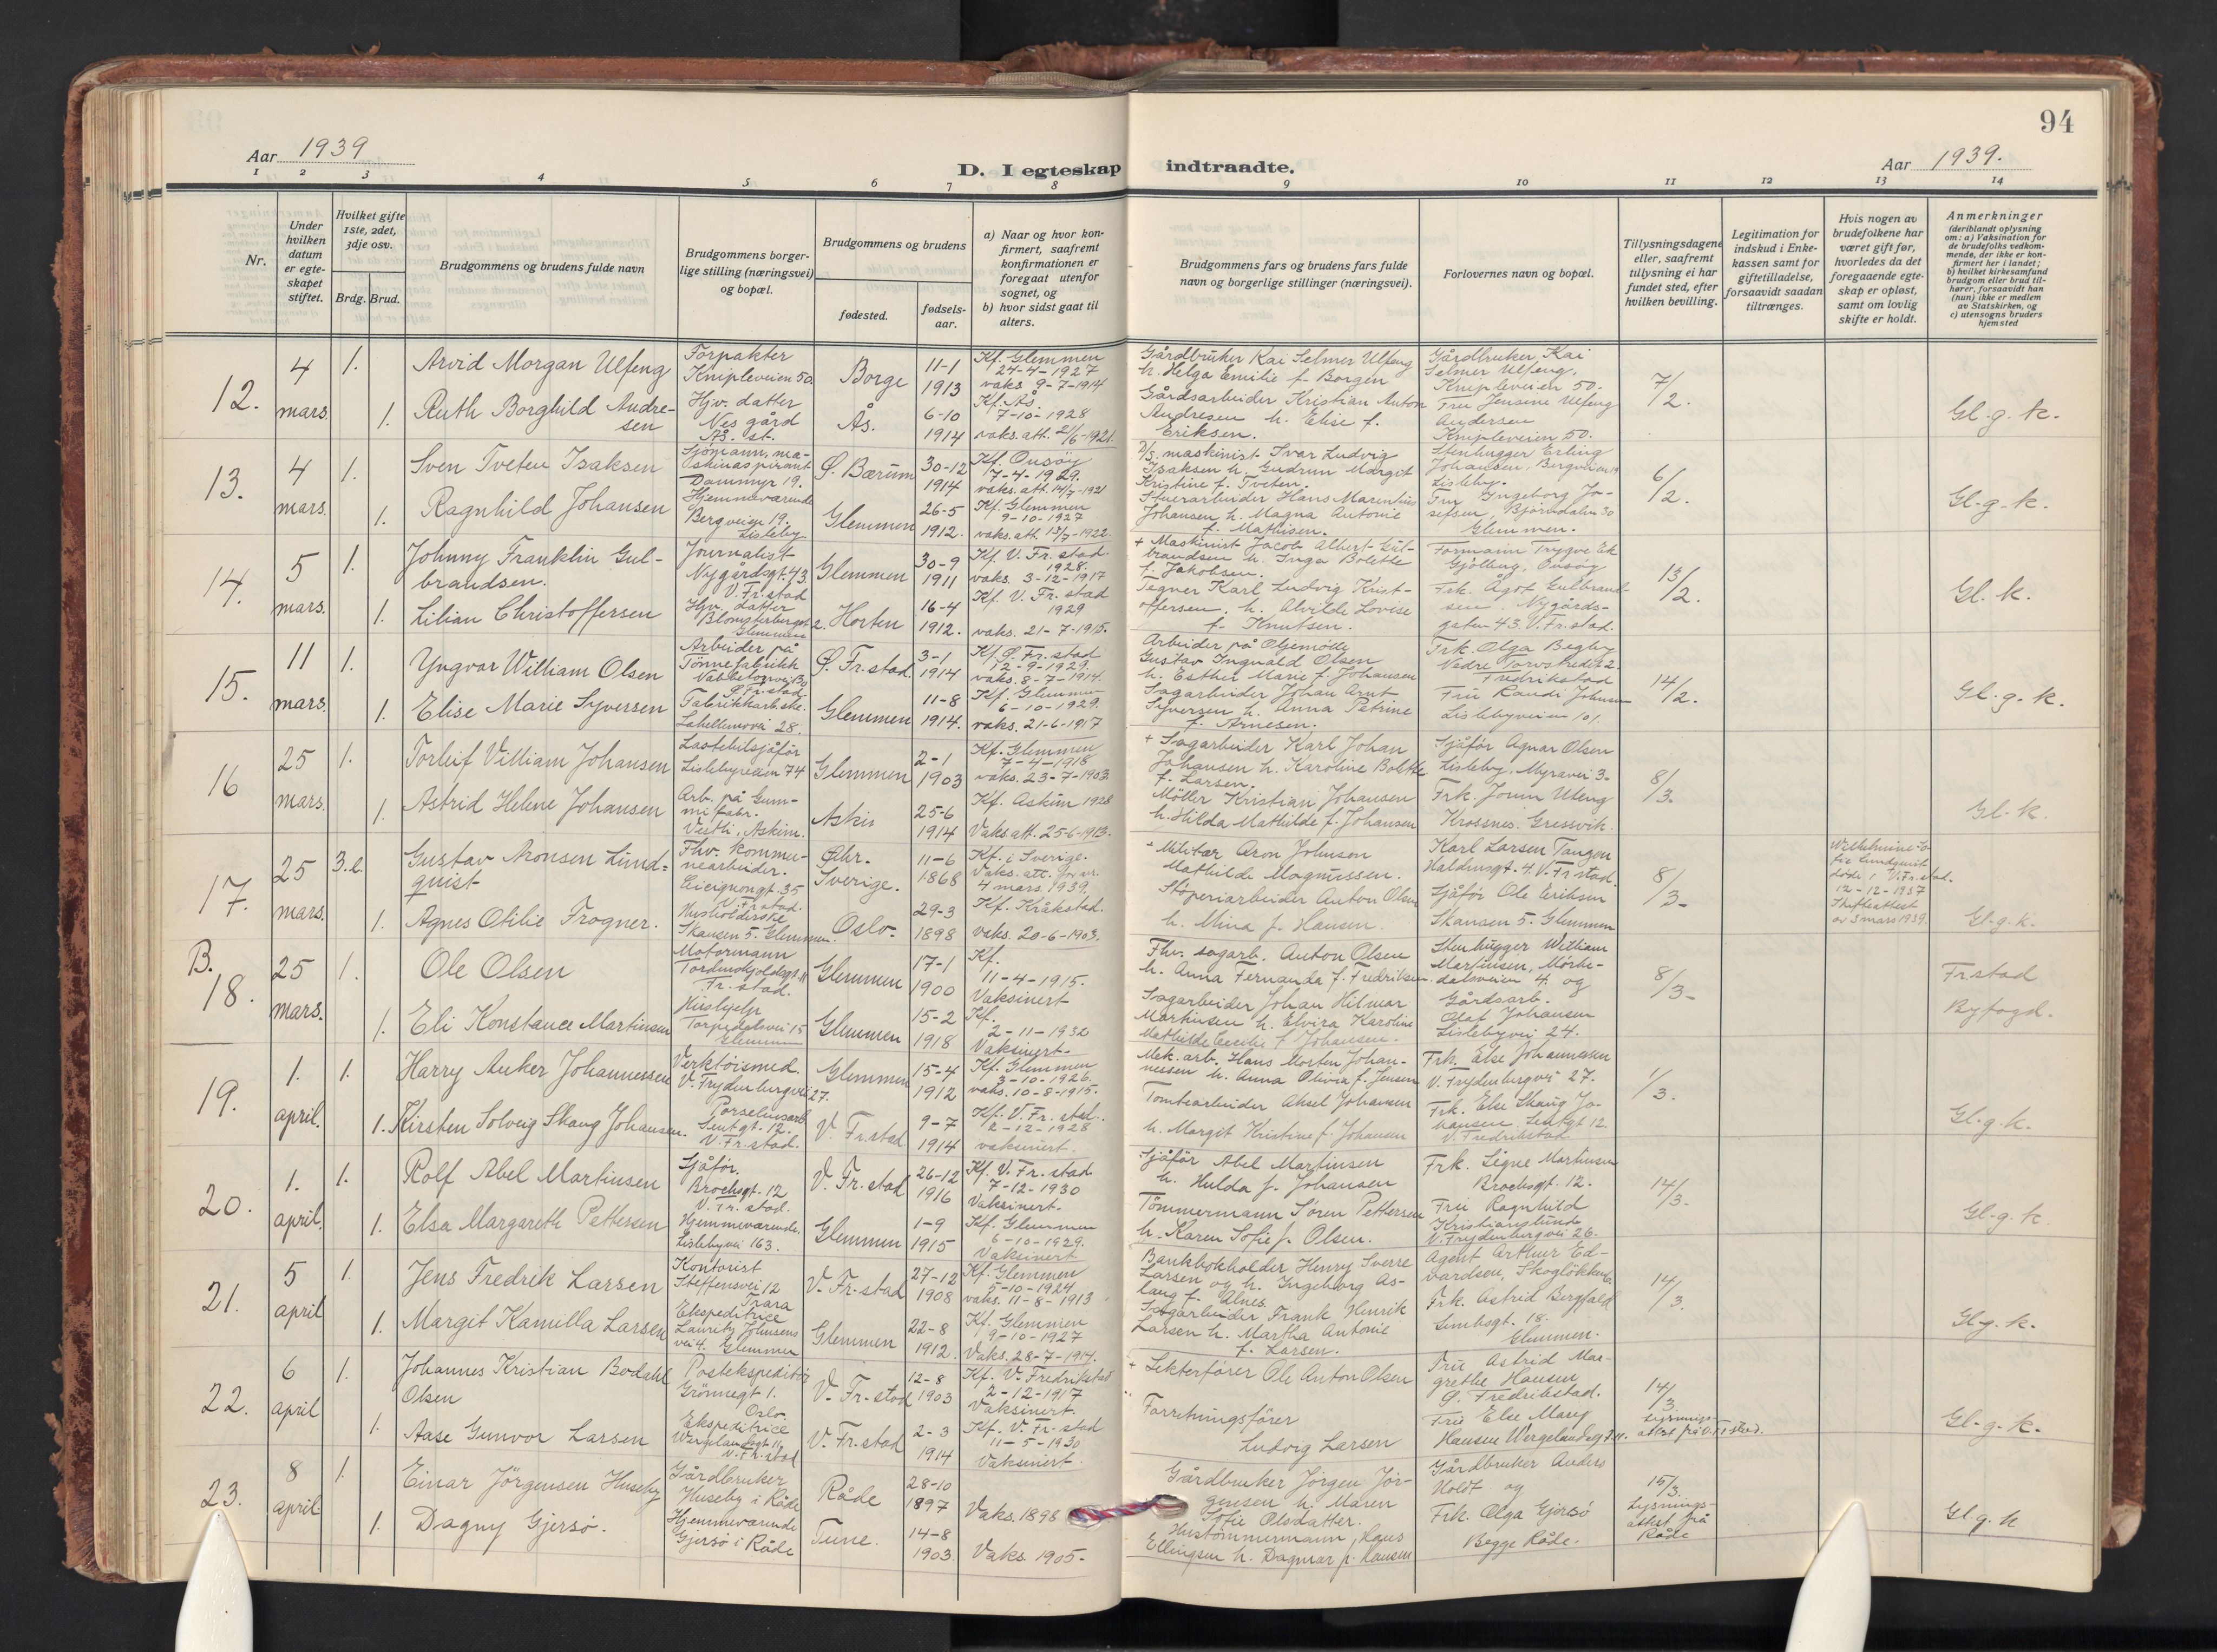 94
Aar 1939
D. I egteskap indtraadte.
Aar 1939.
1 2 3 4 5 6 7 8 9 10 11 12 13 14
Nr.
Under hvilken datum er egteskapet stiftet.
Hvilket gifte 1ste, 2det, 3dje osv.
Brdg. Brud.
Brudgommens og brudens fulde navn
Brudgommens borgerlige stilling (næringsvei) og bopæl.
Brudgommens og brudens
fødested.
fødselsaar.
a) Naar og hvor konfirmert, saafremt konfirmationen er foregaat utenfor sognet, og
b) hvor sidst gaat til alters.
Brudgommens fars og brudens fars fulde navn og borgerlige stillinger (næringsvei).
Forlovernes navn og bopæl.
Tillysningsdagene eller, saafremt tillysning ei har fundet sted, efter hvilken bevilling.
Legitimation for indskud i Enkekassen samt for giftetilladelse, forsaavidt saadan tiltrænges.
Hvis nogen av brudefolkene har været gift før, hvorledes da det foregaaende egteskap er opløst, samt om lovlig skifte er holdt.
Anmerkninger (deriblandt oplysning om: a) Vaksination for de brudefolks vedkommende, der ikke er konfirmert her i landet; b) hvilket kirkesamfund brudgom eller brud tilhører, forsaavidt han (hun) ikke er medlem av Statskirken, og c) utensogns bruders hjemsted
12.
4 mars.
1.
Arvid Morgan Ulfeng
Forpakter
Knipleveien 50.
Borge
11-1 1913
Kf. Glemmen
24-4-1927
vaks. 9-7-1914
Gårdbruker Kai Selmer Ulfeng
h. Helga Emilie f. Borgen
Gårdbruker Kai
Selmer Ulfeng,
Knipleveien 50.
7/2.
1.
Ruth Borghild Andresen
Hjv. datter
Nes gård
Ås. st.
Ås.
6-10 1914
Kf. Ås.
7-10-1928
vaks. att. 21/6-1921.
Gårdsarbeider Kristian Anton
Andresen h. Elise f.
Eriksen.
Fru Jensine Ulfeng
Andersen
Knipleveien 50.
Gl. g. k.
13.
4 mars.
1.
Sven Tveten Isaksen
Sjømann, maskinaspirant
Dammyr 19.
Ø. Bærum
30-12 1914
Kf. Onsøy
7-4-1929.
vaks. att. 14/7-1921
D/S. maskinist Ivar Ludvig
Isaksen h. Gudrun Margit
Kristine f. Tveten.
Stenhugger Erling
Johansen, Bergveien 19
Lisleby.
6/2.
1.
Ragnhild Johansen
Hjemmeværende
Bergveien 19.
Lisleby
Glemmen
26-5 1912.
Kf. Glemmen
9-10-1927
vaks. att. 13/7-1922.
Stuerarbeider Hans Marentius
Johansen h. Magna Antonie
f. Mathisen.
Fru Ingeborg Josefsen, Bjørndalen 30
Glemmen.
Gl. g. k.
14.
5 mars.
1.
Johnny Franklin Gulbrandsen.
Journalist
Nygårdsgt. 43.
V. Fr. stad
Glemmen
30-9 1911
Kf. V. Fr. stad.
1928.
vaks. 3-12-1917
+ Maskinist Jacob Albert Gulbrandsen h. Inga Bolette
f. Jakobsen.
Formann Trygve Ek
Gjølberg, Onsøy
13/2.
1.
Lilian Christoffersen
Hjv. datter
Blomsterberget 2.
Glemmen
Horten
16-4 1912.
Kf. V. Fr. stad
1929
vaks. 21-7-1915.
Tegner Karl Ludvig Kristoffersen, h. Alvilde Lovise
f. Knutsen.
Frk. Ågot Gulbrandsen. Nygårdsgaten 43. V. Fr. stad.
Gl. k.
15.
11 mars.
1.
Yngvar William Olsen
Arbeider på
Tønnefabrikk
Ø. Fr. stad.
Ø. Fr. stad.
3-1 1914
Kf. Ø. Fr. stad
12-9-1929.
vaks. 8-7-1914.
Arbeider på Oljemølle
Gustav Ingvald Olsen
h. Esther Marie f. Johansen
Frk. Olga Begby
Fredrikstad
14/2.
1.
Elise Marie Syversen
Fabrikkarbske.
Labellenvei 28.
Glemmen
11-8 1914.
Kf. Glemmen
6-10-1929.
vaks. 21-6-1917
Sagarbeider Johan Arnt
Syversen h. Anna Petrine
f. Arnesen.
Fru Randi Johnsen
Lislebyveien 101.
Gl. g. k.
16
25 mars.
1.
Torleif Villiam Johansen
Lastebilsjåfør
Lislebyveien 74
Glemmen
2-1 1903
Kf. Glemmen
7-4-1918
vaks. 23-7-1903.
+ Sagarbeider Karl Johan
Johansen h. Karoline Bolette
f. Larsen.
Sjåfør Agnar Olsen
Lisleby, Myravei 3.
8/3.
1.
Astrid Helene Johansen
Arb. på Gummifabr.
Vestli, Askim.
Askim
25-6 1914
Kf. Askim 1928
Vaks att. 25-6-1913.
Møller Kristian Johansen
h. Hilda Mathilde f. Johansen
Frk. Jorun Uteng
Krossnes. Gressvik.
Gl. k.
17.
25 mars.
3. e.
Gustav Aronsen Lundquist
Fhv. kommunearbeider.
Cicignongt. 35
V. Fr. stad.
Øhr.
Sverige.
11-6 1868
Kf. i Sverige.
Vaks. att.
4 mars. 1939.
+ Militær Aron Johnsen
Mathilde Magnussen.
Karl Larsen Tangen
Haldensgt. 4. V. Fr. stad.
8/3-
Lundquist
døde i V. Fr. stad.
12-12-1937
Skifteattest
av 3 mars 1939.
1.
Agnes Otilie Frogner.
Husholderske
Skansen 5. Glemmen.
Oslo.
29-3 1898
Kf. Kråkstad.
Vaks. 20-6-1903.
Støperiarbeider Anton Olsen
h. Mina f. Hansen.
Sjåfør Ole Eriksen
Skansen 5. Glemmen
Gl. g. k.
B.
18.
25 mars.
1.
Ole Olsen
Motormann
Tordenskjoldsgt. 11
Fr. stad.
Glemmen
17-1 1900
Kf.
11-4-1915.
Vaksinert
Fhv. sagarb. Anton Olsen
h. Anna Fernanda f. Fredriksen.
Stenhugger William
Martinsen, Mørkedalsveien 4. og
8/3-
Fr. stad
1.
Eli Konstance Martinsen
Hushjelp
Torpedalsvei 15
Glemmen
Glemmen
15-2 1918
Kf.
2-11-1932
Vaksinert.
Sagarbeider Johan Hilmar
Martinsen h. Elvira Karoline
Mathilde Cecilie f. Johansen.
Gårdsarb.
Olaf Johansen
Lislebyvei 24.
Byfogd.
19.
1. april.
1.
Harry Anker Johannessen
Verktøismed.
V. Frydenbergvei 27.
Glemmen
15-4 1912
Kf. Glemmen
3-10-1926.
vaks. 10-8-1915.
Mek. arb. Hans Morten Johannessen h. Anna Olivia f. Jensen
Frk. Else Johannessen
V. Frydenbergvei 27.
1/3.
1.
Kirsten Solveig Skaug Johansen.
Porselensarb.
V. Fr. stad.
V. Fr. stad
9-7 1914
Kf. V. Fr. stad.
2-12-1928
vaksinert.
Tomtearbeider Aksel Johansen
h. Margit Kristine f. Johansen
Frk. Else Skaug Johansen.
V. Fredrikstad
Gl. g. k.
20.
1. april.
1.
Rolf Abel Martinsen
Sjåfør.
Brochsgt. 12
V. Fr. stad.
V. Fr. stad
26-12 1916
Kf. V. Fr. stad
7-12-1930
Vaksinert.
Sjåfør Abel Martinsen
h. Hulda f. Johansen
Frk. Signe Martinsen
Brochsgt. 12.
14/3.
1.
Elsa Margareth Pettersen
Hjemmeværende.
Lislebyvei 163.
Glemmen
1-9 1915
Kf. Glemmen
6-10-1929.
Vaksinert
Tømmermann Søren Pettersen
h. Karen Sofie f. Olsen.
Fru Ragnhild
Kristianslund
V. Frydenbergvei 26.
Gl. g. k.
21.
5 april
1.
Jens Fredrik Larsen
Kontorist
Steffensvei 12
Trara
V. Fr. stad
27-12 1908
Kf. Glemmen
5-10-1924
vaks. 11-8-1913
Bankbokholder Henry Sverre
Larsen og h. Ingeborg Aslaug f. Ulnes.
Agent Arthur Edvardsen, Skogløkken.
14/3.
1.
Margit Kamilla Larsen
Ekspeditrice
Lauritz Johnsens
vei 4. Glemmen
Glemmen
22-8 1912.
Kf. Glemmen
9-10-1927
Vaks. 28-7-1914.
Sagarbeider Frank Henrik
Larsen h. Martha Antonie
f. Larsen.
Frk. Astrid Bergfald
Glemmen.
Gl. g. k.
22.
6 april
1.
Johannes Kristian Bodahl
Olsen
Postekspeditør
Grønnegt 1.
Oslo
V. Fr. stad
12-8 1903
Kf. V. Fredrikstad
2-12-1917
Vaksinert.
+ Lekterfører Ole Anton Olsen
Fru Astrid Margrethe Hansen
Ø. Fredrikstad.
14/3.
1.
Aase Gunvor Larsen
Ekspeditrice
Wergelandsgt 11,
V. Fr. stad
V. Fr. stad
2-3 1914
Kf. V. Fr. stad
11-5-1930
Vaksinert.
Forretningsfører
Ludvig Larsen
Fru Else Mary
Hansen Wergelandsgt 11.
Lysningsattest fra V. Fr. stad.
Gl. g. k.
23.
8 april
1.
Einar Jörgensen Huseby
Gårdbruker
Huseby i Råde
Råde
28-10 1897
Vaks. 1898
Gårdbruker Jørgen Jørgensen h. Maren
Sofie Olsdatter.
Gårdbruker Anders
Holdt og
15/3.
Lysningsattest fra
Råde
1.
Dagny Gjersø.
Hjemmeværende
Gjersø i Råde
Tune.
14-8 1903.
Vaks. 1905.
Hustømmermann Hans
Ellingsen h. Dagmar f. Hansen
Frk. Olga Gjersø
Begge Råde.
Gl. g. k